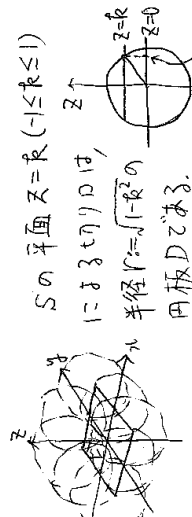 Sの平面 z=k (-1≤k≤1)
による切り口は,
半径 r:=√1-k² の
円板Dである.
z
y
x
z
z=k
z=0